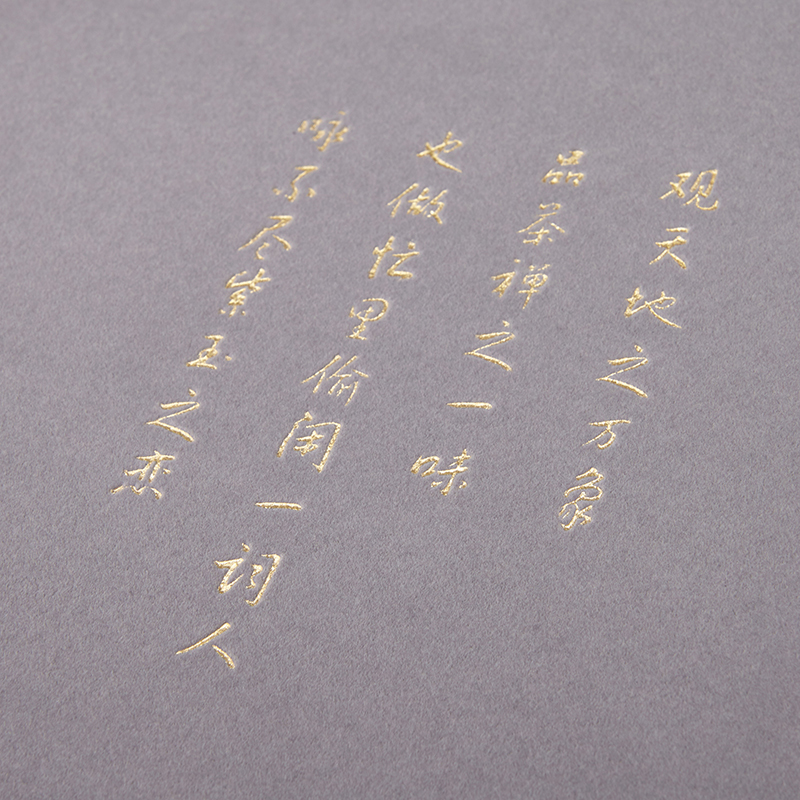 观天地之万象
品茶禅之一味
也做忙里偷闲一词人
咏不尽紫玉之恋